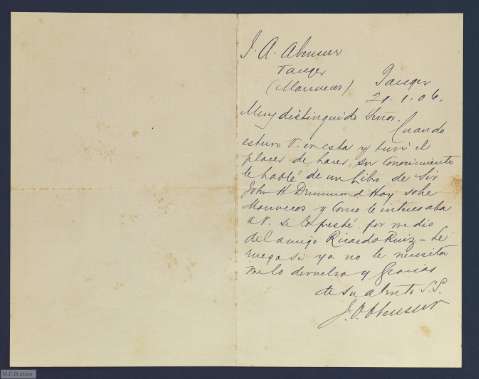 J. A. Abensur
Tanger
(Marruecos)
Tanger
21.1.06.
Muy distinguido Señor.
Cuando
estuvo V. en esta y tuve el
placer de hacer su conocimiento
le hablé de un libro de Sir
John H Drummond Hay sobre
Marruecos y como le interesaba
a V. se lo presté por medio
del amigo Ricardo Ruiz – Le
ruego si ya no le necesita
me lo devuelva y Gracias
de su atento S.S.
J. A. Abensur